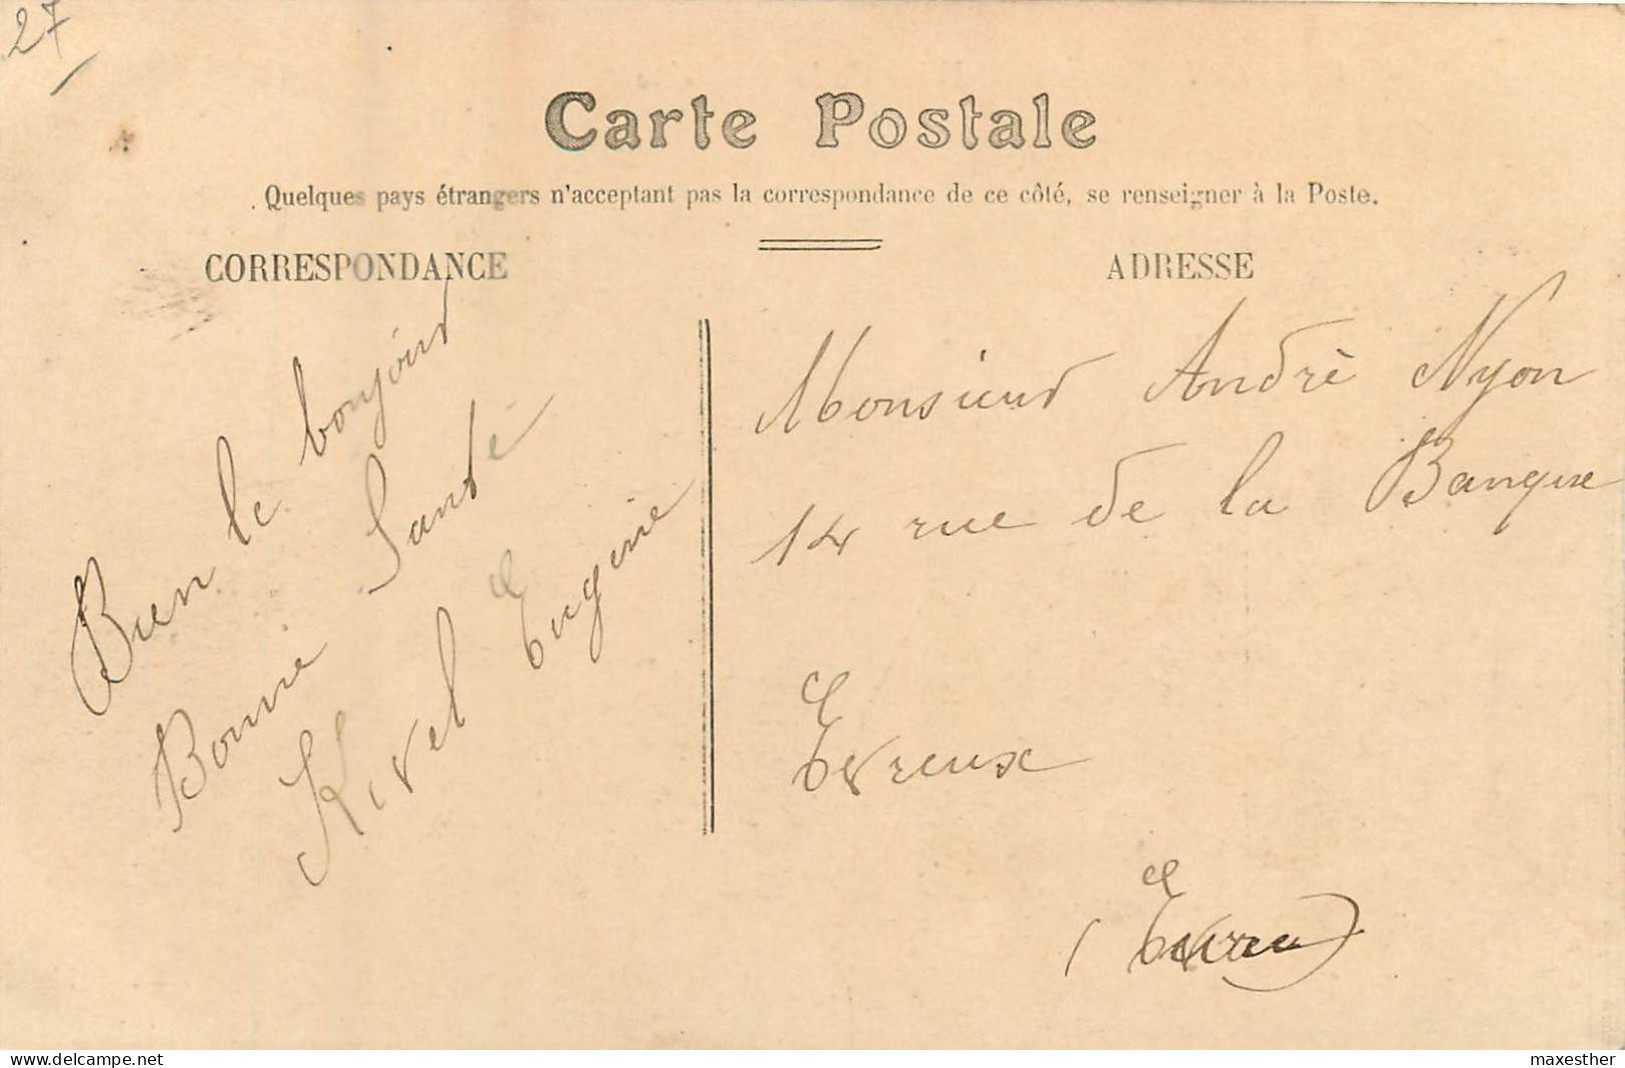 27
Carte Postale
Quelques pays étrangers n'acceptant pas la correspondance de ce côté, se renseigner à la Poste.
CORRESPONDANCE
Bien le bonjour
Bonne Santé
Kivel Eugenie
ADRESSE
Monsieur André Nyon
14 rue de la Banque
Evreux
delcampe.net
maxesther